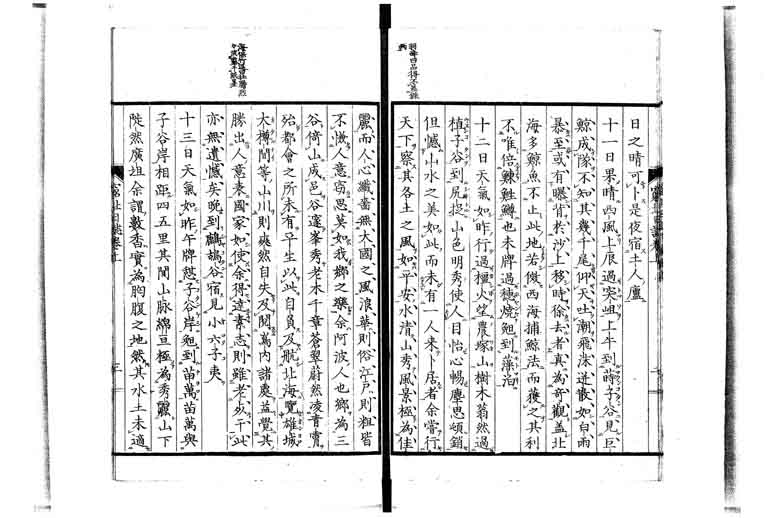 日之晴可卜是夜宿土人廬
十一日果晴西風上辰過突岨上午到蒔子谷見巨
鯨成隊不知其幾千尾仰天吐潮飛沫迸散如白雨
暴至或有曝背於沙上移時徐去者真為奇觀蓋北
海多鯨魚不止此地若倣西海捕鯨法而獲之其利
不唯倍鰊鮭鱒也未牌過穂燒晩到藻泊
十二日天氣如昨行過檀火望農塚山樹木蓊然過
植子谷到尻捉山色明秀使人目怡心暢塵思頓銷
但憾山水之美如此而未有一人來卜居者余嘗行
天下察其各土之風如平安水清山秀風景極為佳
麗而人心纖嗇無大國之風浪華則俗江戶則粗皆
不愜人意竊思莫如我鄉之樂余阿波人也鄉為三
谷倚山成邑谷邃峯秀老木千章蒼翠蔚然凌青霄
殆都會之所未有平生以此自負及航北海覽雄城
大樽間等山川則爽然自失及閱萬內諸處益覺其
勝出人意表國家如使余得達素志則雖老於此
亦無遺憾矣晩到鵜鵠谷宿見小六子夷
十三日天氣如昨午牌憩子谷岸晩到苗萬苗萬與
子谷岸相距四五里其間山脉綿亘極為秀麗山下
陡然廣坦余謂數香實為胸腹之地然其水土未適